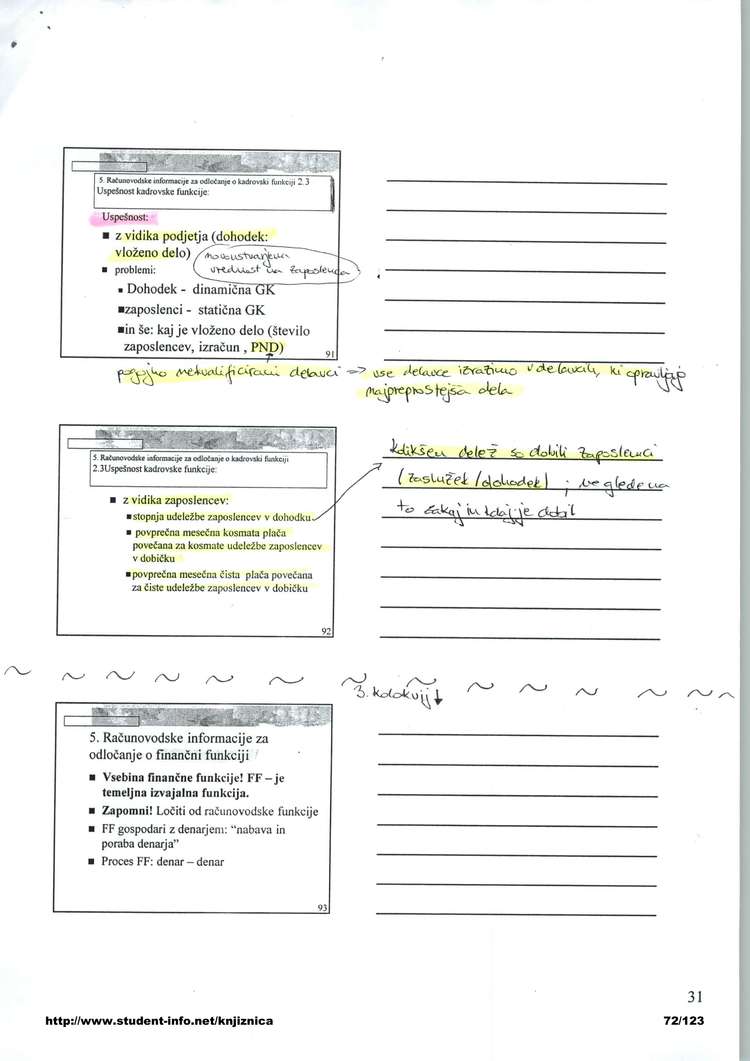 5. Računovodske informacije za odločanje o kadrovski funkciji 2.3
Uspešnost kadrovske funkcije:
Uspešnost:
■ z vidika podjetja (dohodek:
vloženo delo)
novoustvarjena
vrednost na zaposlenca
■ problemi:
■ Dohodek - dinamična GK
■zaposlenci - statična GK
■in še: kaj je vloženo delo (število
zaposlencev, izračun , PND)
91
pogojno nekvalificirani delavci => vse delavce izrazimo v delavcih, ki opravljajo
najpreprostejša dela
5. Računovodske informacije za odločanje o kadrovski funkciji
2.3Uspešnost kadrovske funkcije:
■ z vidika zaposlencev:
■stopnja udeležbe zaposlencev v dohodku
■ povprečna mesečna kosmata plača
povečana za kosmate udeležbe zaposlencev
v dobičku
■povprečna mesečna čista plača povečana
za čiste udeležbe zaposlencev v dobičku
92
kolikšen delež so dobili zaposlenci
(zaslužek/dohodek) ; ne glede na
to zakaj in kdaj je dobil
3. kolokvij ↓
5. Računovodske informacije za
odločanje o finančni funkciji
■ Vsebina finančne funkcije! FF – je
temeljna izvajalna funkcija.
■ Zapomni! Ločiti od računovodske funkcije
■ FF gospodari z denarjem: “nabava in
poraba denarja”
■ Proces FF: denar – denar
93
31
http://www.student-info.net/knjiznica
72/123